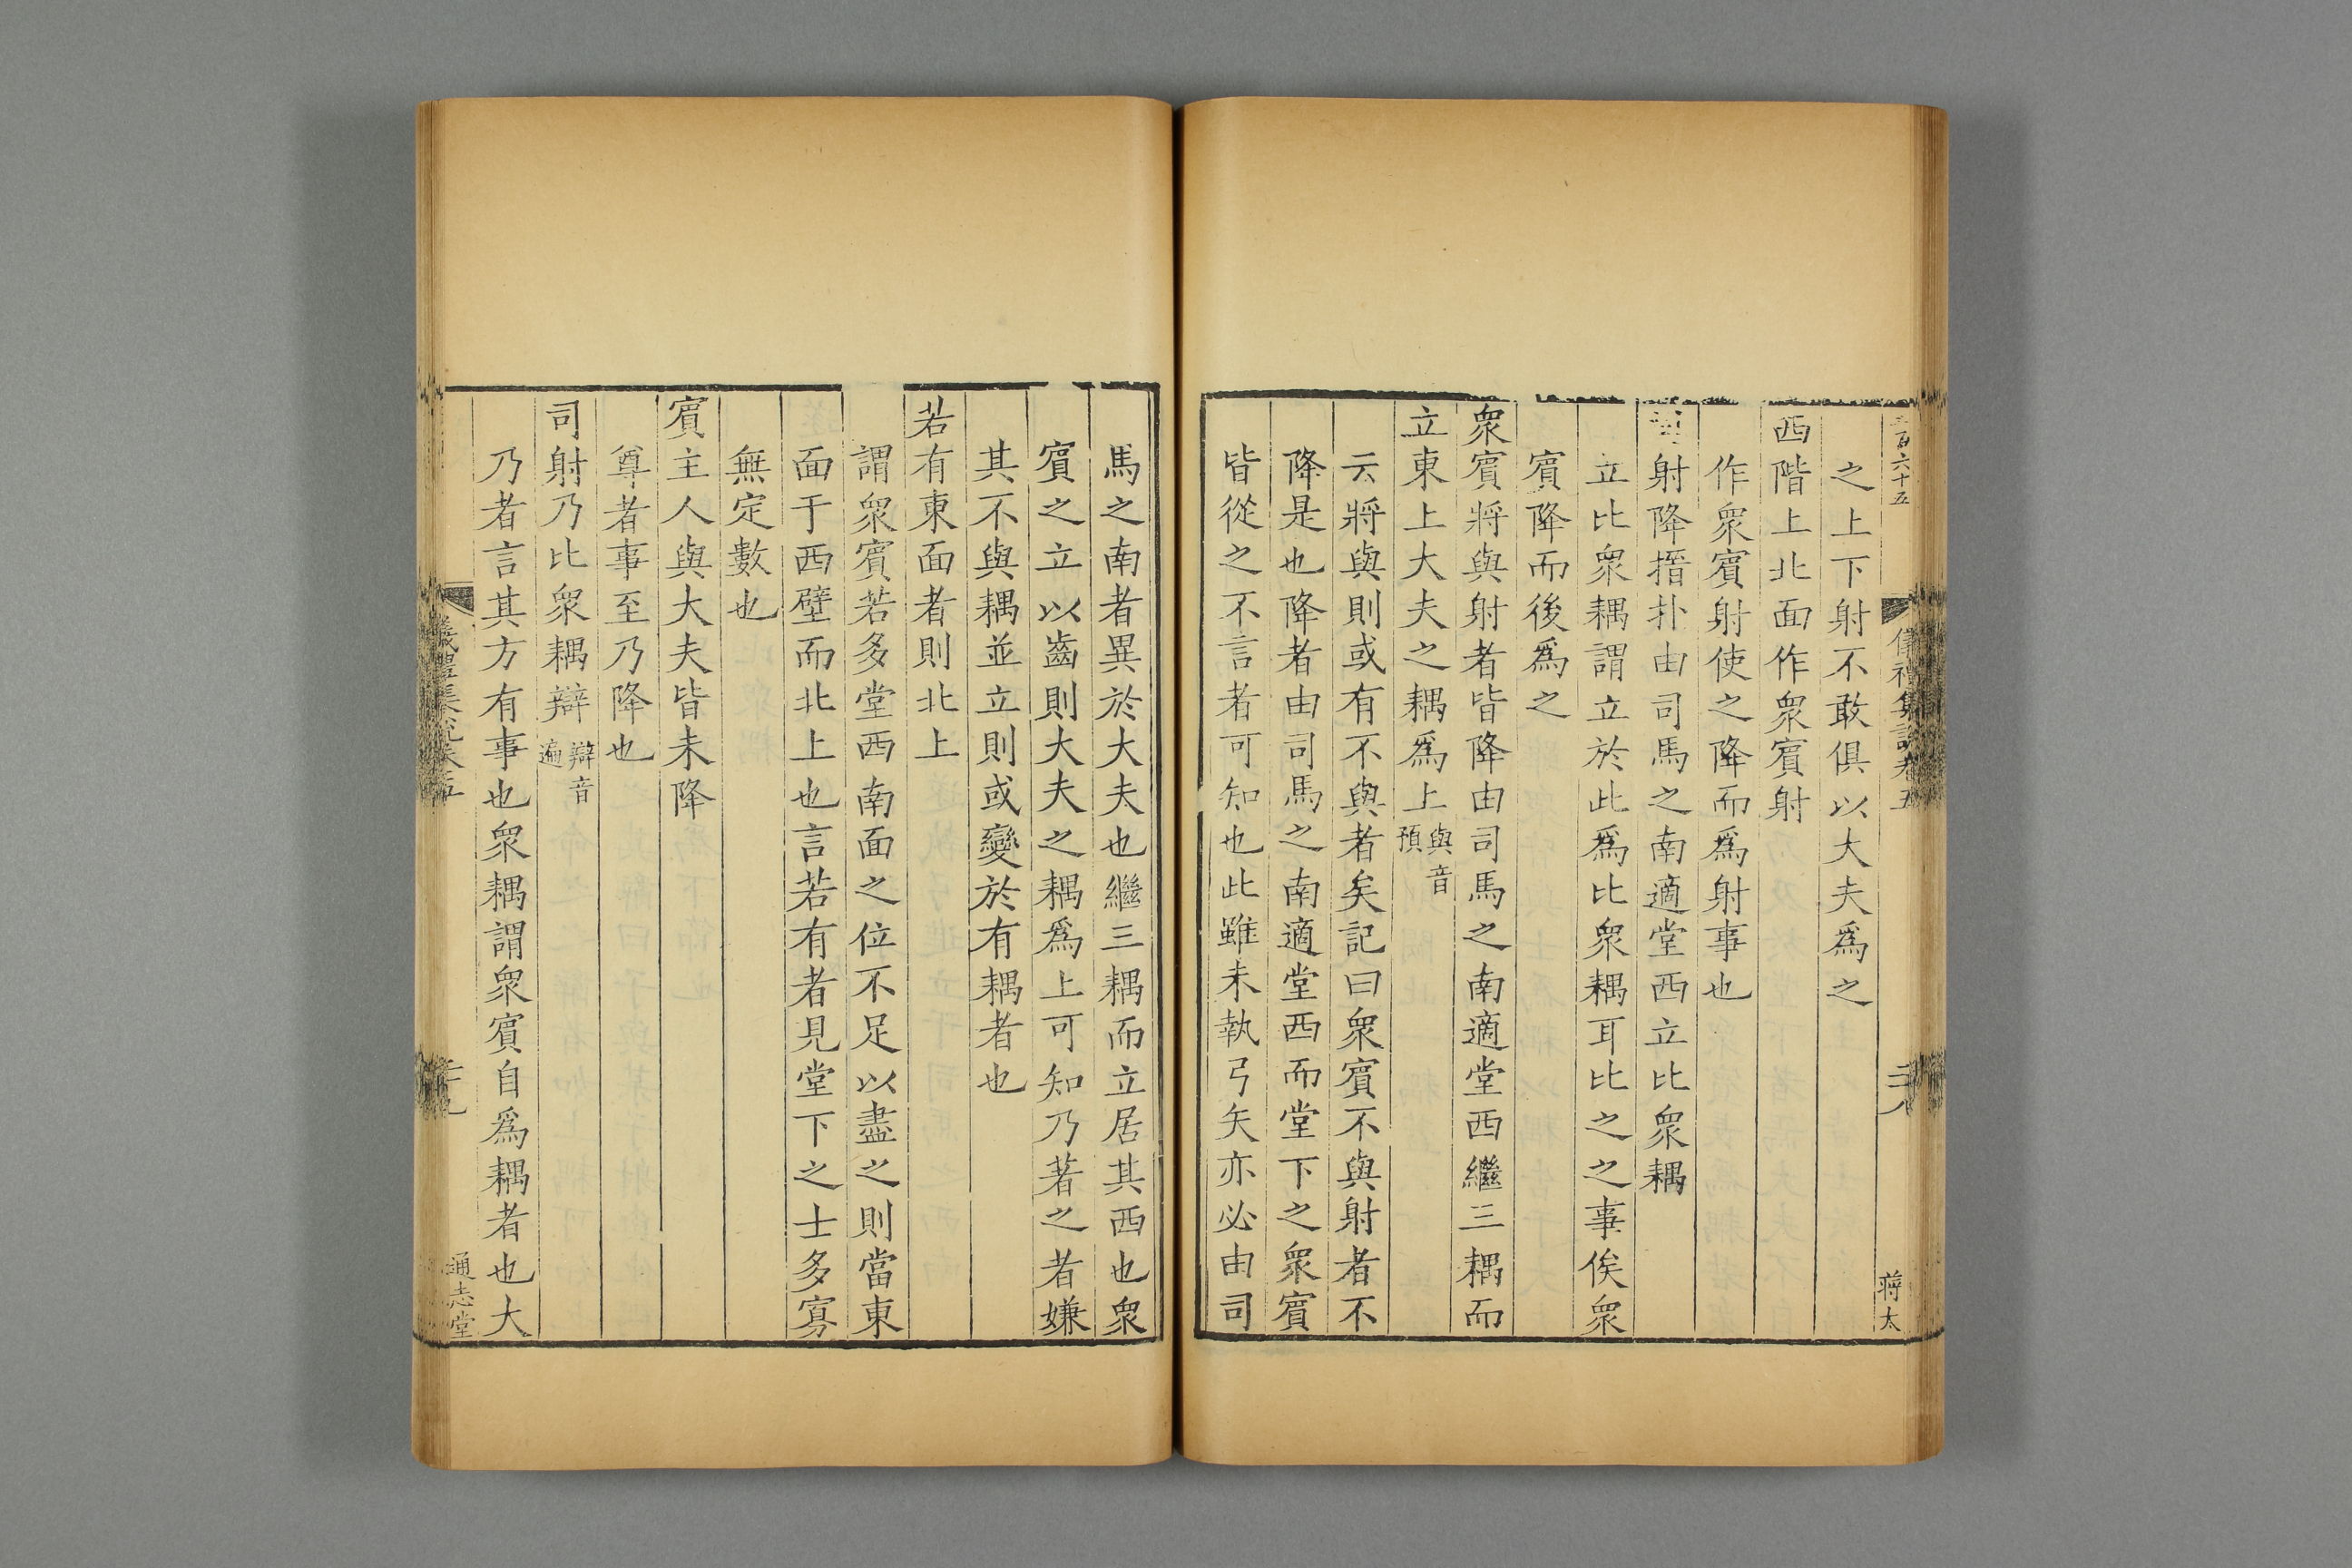 百六十五
儀禮集說卷五
二八
蔣太
之上下射不敢俱以大夫爲之
西階上北面作衆賓射
作衆賓射使之降而爲射事也
射降搢扑由司馬之南適堂西立比衆耦
立比衆耦謂立於此爲比衆耦耳比之之事俟衆
賓降而後爲之
衆賓將與射者皆降由司馬之南適堂西繼三耦而
立東上大夫之耦爲上與音預
云將與則或有不與者矣記曰衆賓不與射者不
降是也降者由司馬之南適堂西而堂下之衆賓
皆從之不言者可知也此雖未執弓矢亦必由司
馬之南者異於大夫也繼三耦而立居其西也衆
賓之立以齒則大夫之耦爲上可知乃著之者嫌
其不與耦並立則或變於有耦者也
若有東面者則北上
謂衆賓若多堂西南面之位不足以盡之則當東
面于西壁而北上也言若有者見堂下之士多寡
無定數也
賓主人與大夫皆未降
尊者事至乃降也
司射乃比衆耦辯辯音遍
乃者言其方有事也衆耦謂衆賓自爲耦者也大
儀禮集說卷五
通志堂